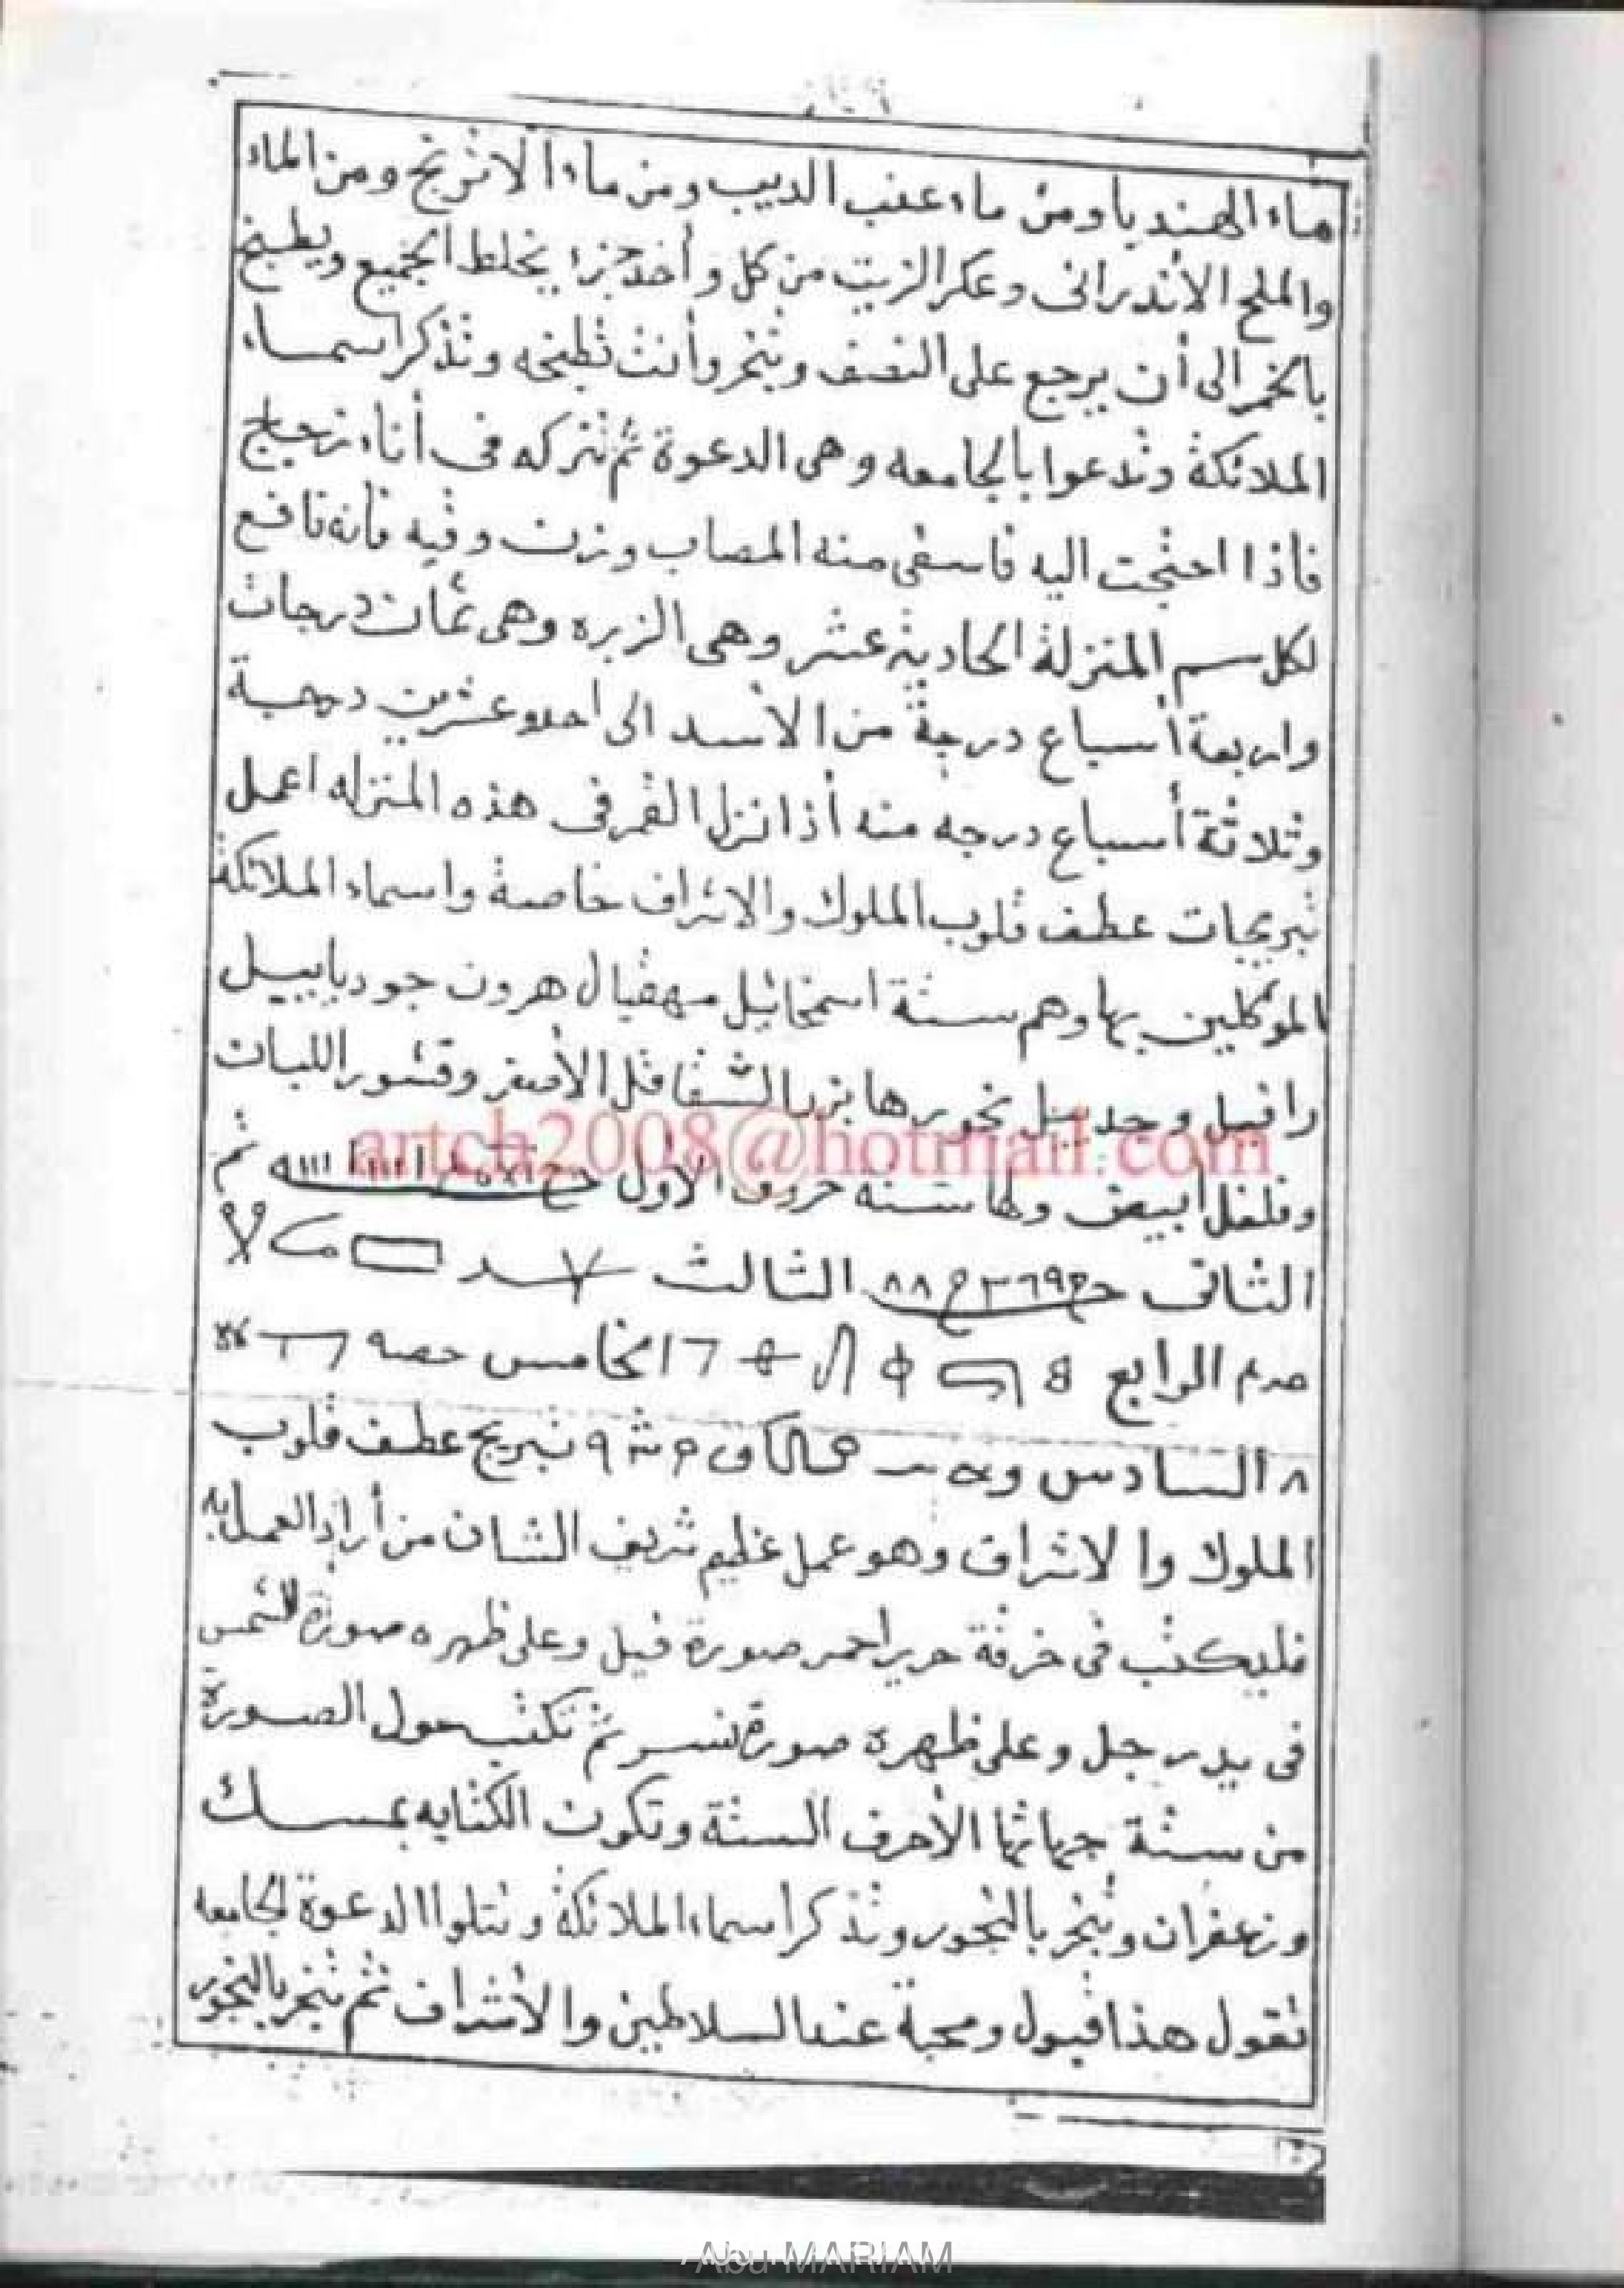 ماء الهندبا ومن ماء عنب الديب ومن ماء الاترنج ومن الماء
والملح الاندرانى وعكر الزيت من كل واخد جزا يخلط الجميع ويطبخ
بالخمر الى أن يرجع على النصف وتبخر وأنت تطبخه وتذكر اسماء
الملائكة وتدعوا بالجامعه وهى الدعوة ثم تتركه فى أناء زجاج
فاذا احتجت اليه فاسقى منه المصاب وزن وقيه فانه نافع
لكل سم المنزلة الحادية عشر وهى الزبره وهى ثمان درجات
واربعة أسباع درجة من الأسد الى احد وعشرين درجة
وثلاثة أسباع درجه منه أذا نزل القمر فى هذه المنزله اعمل
تبريجات عطف قلوب الملوك والاشراف خاصة واسماء الملائكة
الموكلين بها وهم ستة اسمخائيل سهقيال هرون جوديابييل
رافيل وحدييل بخورها بزر الشقاقل الأصفر وقشور اللبان
وفلفل ابيض ولها ستة حروف الاول ثم
الثانى الثالث
الرابع الخامس
السادس تبريج عطف قلوب
الملوك والاشراف وهو عمل عظيم شريف الشان من أراد العمل به
فليكتب فى خرقة حرير احمر صورة فيل وعلى ظهره صورة الشمس
فى يد رجل وعلى ظهره صورة نسر ثم تكتب حول الصورة
من ستة جهاتها الأحرف الستة وتكون الكتابه بمسك
وزعفران وتبخر بالبخور وتذكر اسماء الملائكة وتتلوا الدعوة الجامعه
تقول هذا قبول ومحبة عند السلاطين والأشراف ثم تبخر بالبخور
artch2008@hotmail.com
Abu MARIAM